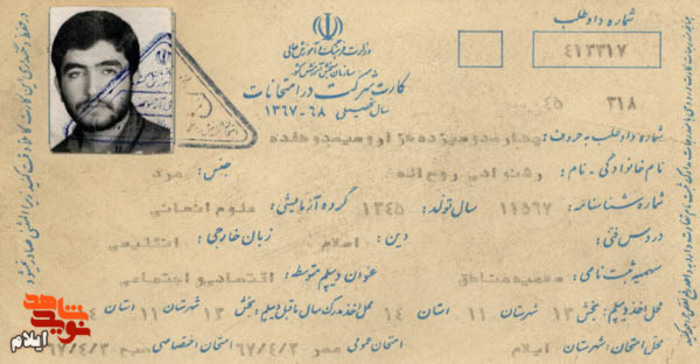 شماره داوطلب
وزارت فرهنگ و آموزش عالی
سازمان سنجش آموزش کشور
۴۱۳۳۱۷
کارت شرکت در امتحانات
سال تحصیلی ۶۸-۱۳۶۷
۳۱۸ ۴۵
شماره داوطلب به حروف: چهارصدو سیزده هزار وسیصدو هفده
نام خانوادگی - نام: رشنوادی روح اله جنس: مرد
شماره شناسنامه: ۱۱۵۶۷ سال تولد: ۱۳۴۵ گروه آزمایشی: علوم انسانی
دروس فنی: دین: اسلام زبان خارجی: انگلیسی
سهمیه ثبت نامی: سهمیه مناطق عنوان دیپلم متوسطه: اقتصاد و اجتماعی
محل اخذ دیپلم: بخش ۱۳ شهرستان ۱۱ استان ۱۴ محل اخذ مدرک سال ماقبل دیپلم: بخش ۱۳ شهرستان ۱۱ استان
محل امتحان: ایلام امتحان عمومی عصر ۶۷/۴/۳ امتحان اختصاصی صبح ۶۷/۴/۳
نوید شاهد
ایلام